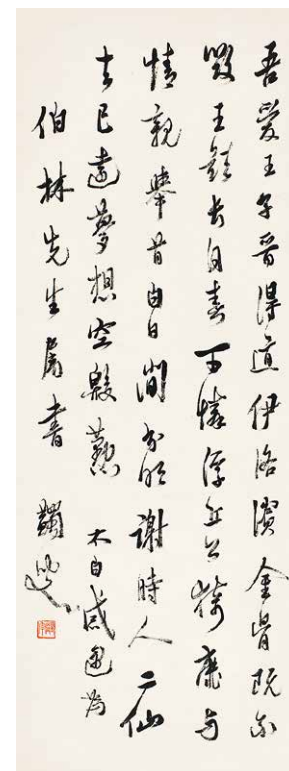 吾愛王子晉得道伊洛濱金骨既不
毀玉顏長自春可憐浮丘公猗靡與
情親舉首白日間分明謝時人二仙
去已遠夢想空殷勤 太白感遇為
伯林先生屬書